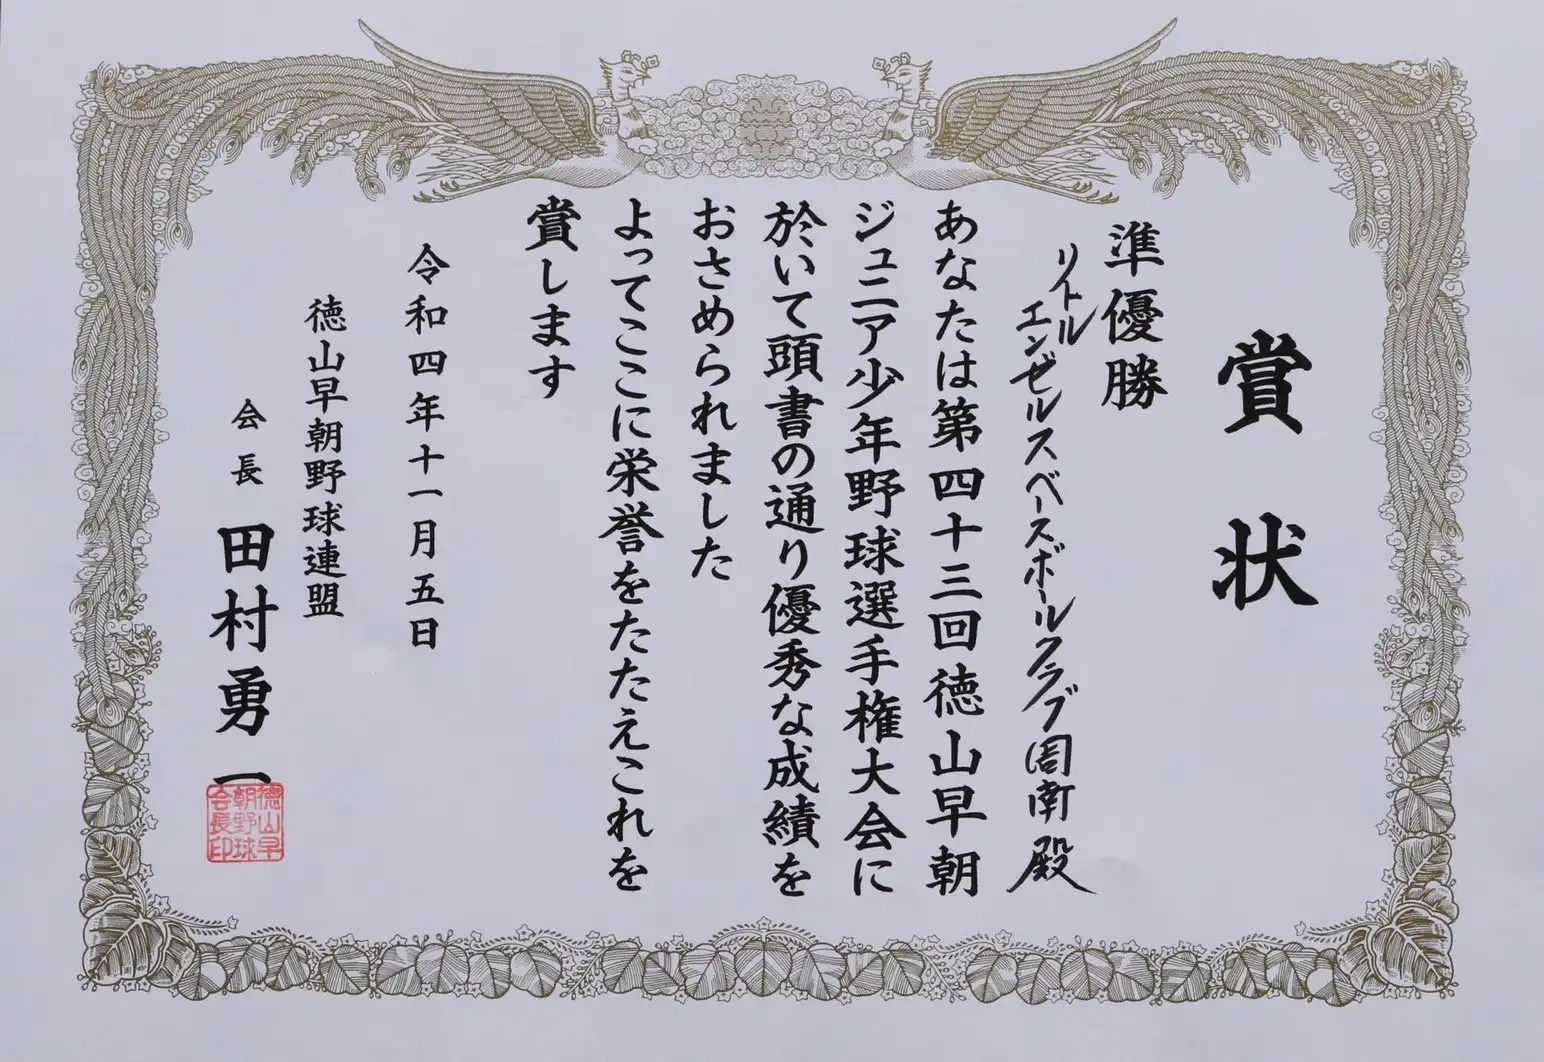 賞状
準優勝
リトル
エンゼルスベースボールクラブ周南殿
あなたは第四十三回徳山早朝
ジュニア少年野球選手権大会に
於いて頭書の通り優秀な成績を
おさめられました
よってここに栄誉をたたえこれを
賞します
令和四年十一月五日
徳山早朝野球連盟
会長 田村勇一
徳山早
朝野球
会長印